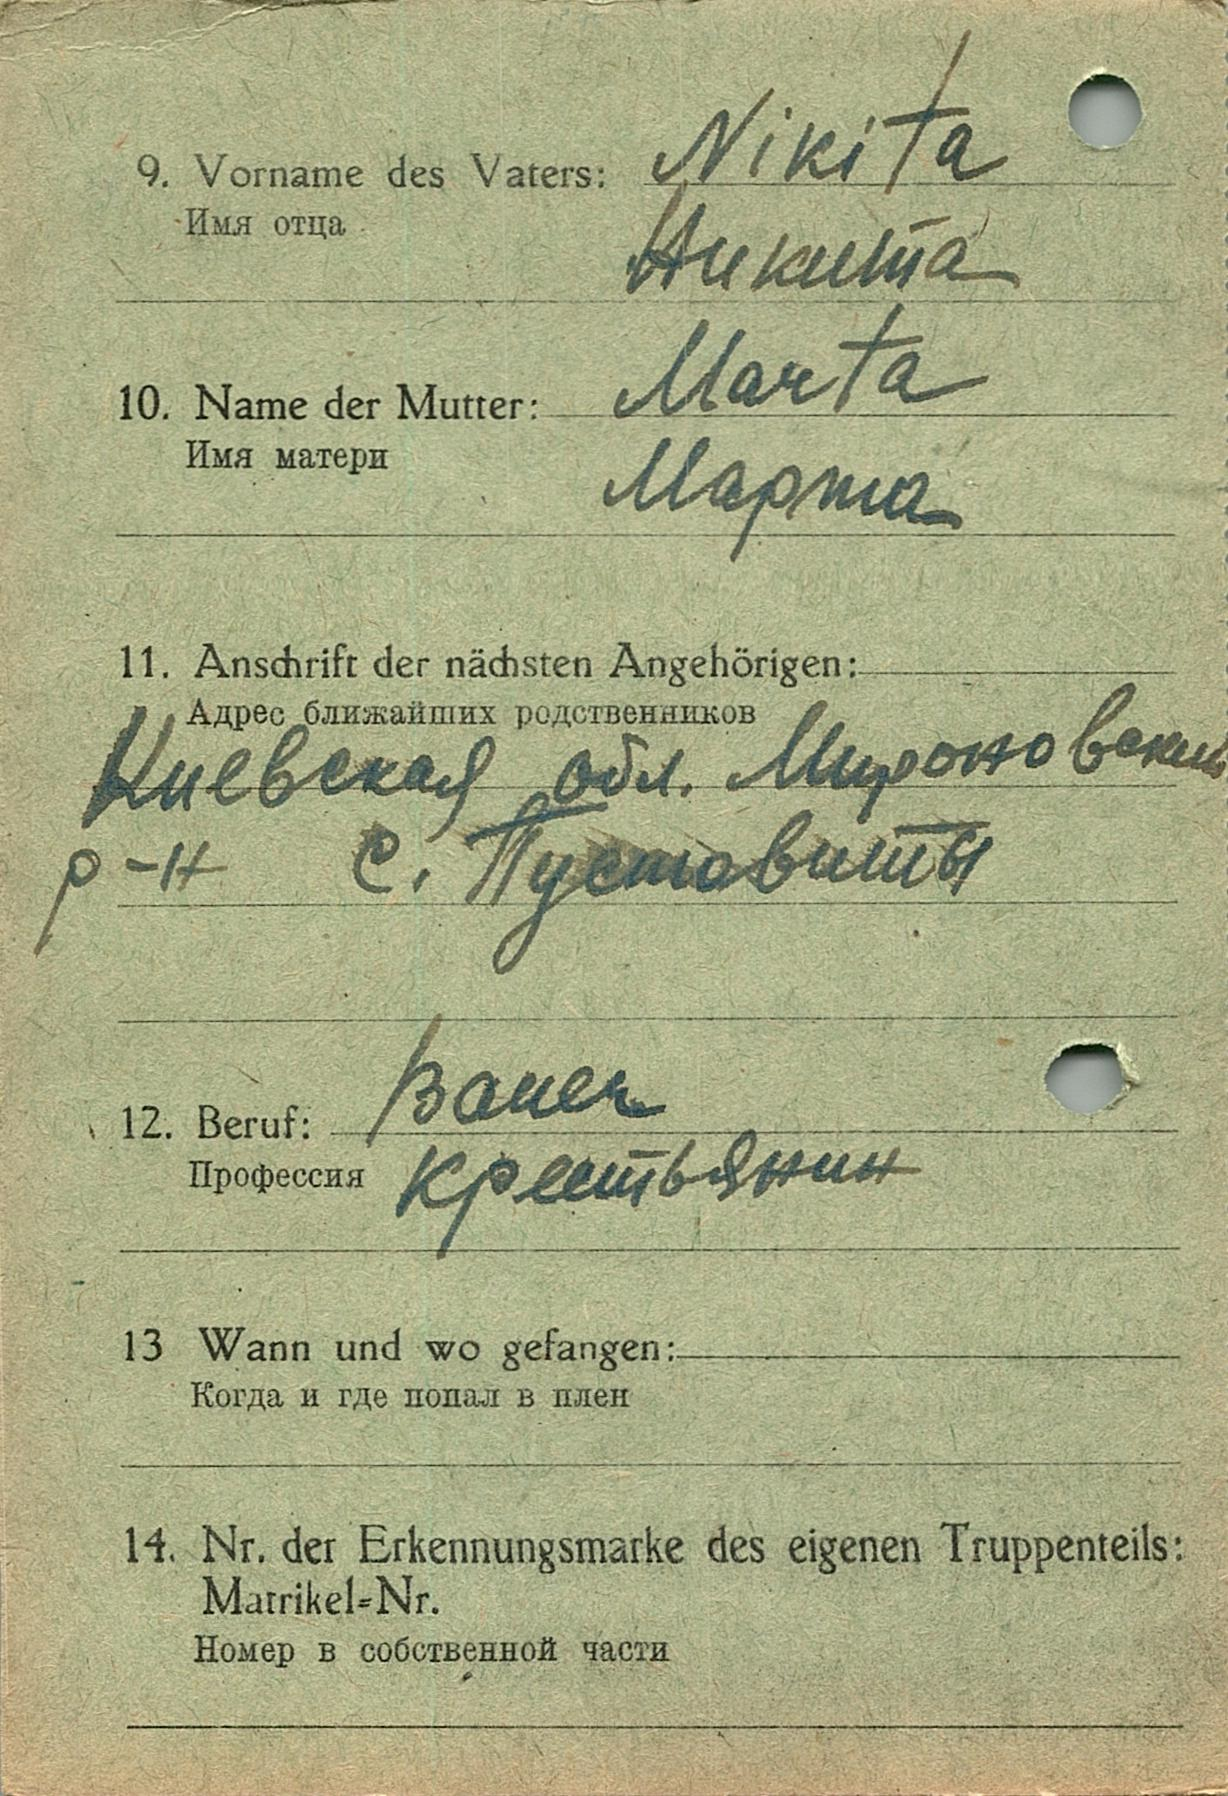 9. Vorname des Vaters: Nikita
Имя отца Никита
10. Name der Mutter: Marta
Имя матери Марта
11. Anschrift der nächsten Angehörigen:
Адрес ближайших родственников
Киевская обл. Мироновский
р-н с. Пустовиты
12. Beruf: Bauer
Профессия крестьянин
13 Wann und wo gefangen:
Когда и где попал в плен
14. Nr. der Erkennungsmarke des eigenen Truppenteils:
Matrikel=Nr.
Номер в собственной части